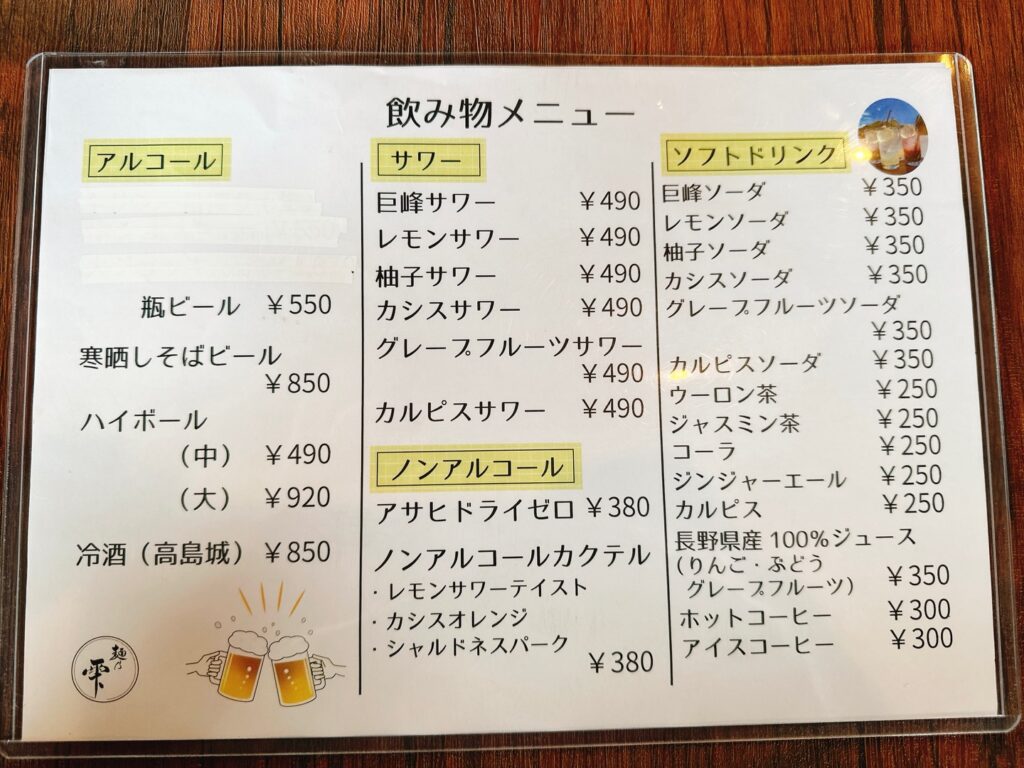 飲み物メニュー
アルコール
瓶ビール ￥550
寒晒しそばビール
￥850
ハイボール
（中） ￥490
（大） ￥920
冷酒（高島城） ￥850
麺乃
雫
サワー
巨峰サワー ￥490
レモンサワー ￥490
柚子サワー ￥490
カシスサワー ￥490
グレープフルーツサワー
￥490
カルピスサワー ￥490
ノンアルコール
アサヒドライゼロ ￥380
ノンアルコールカクテル
・レモンサワーテイスト
・カシスオレンジ
・シャルドネスパーク
￥380
ソフトドリンク
巨峰ソーダ ￥350
レモンソーダ ￥350
柚子ソーダ ￥350
カシスソーダ ￥350
グレープフルーツソーダ
￥350
カルピスソーダ ￥350
ウーロン茶 ￥250
ジャスミン茶 ￥250
コーラ ￥250
ジンジャーエール ￥250
カルピス ￥250
長野県産 100%ジュース
（りんご・ぶどう
グレープフルーツ） ￥350
ホットコーヒー ￥300
アイスコーヒー ￥300